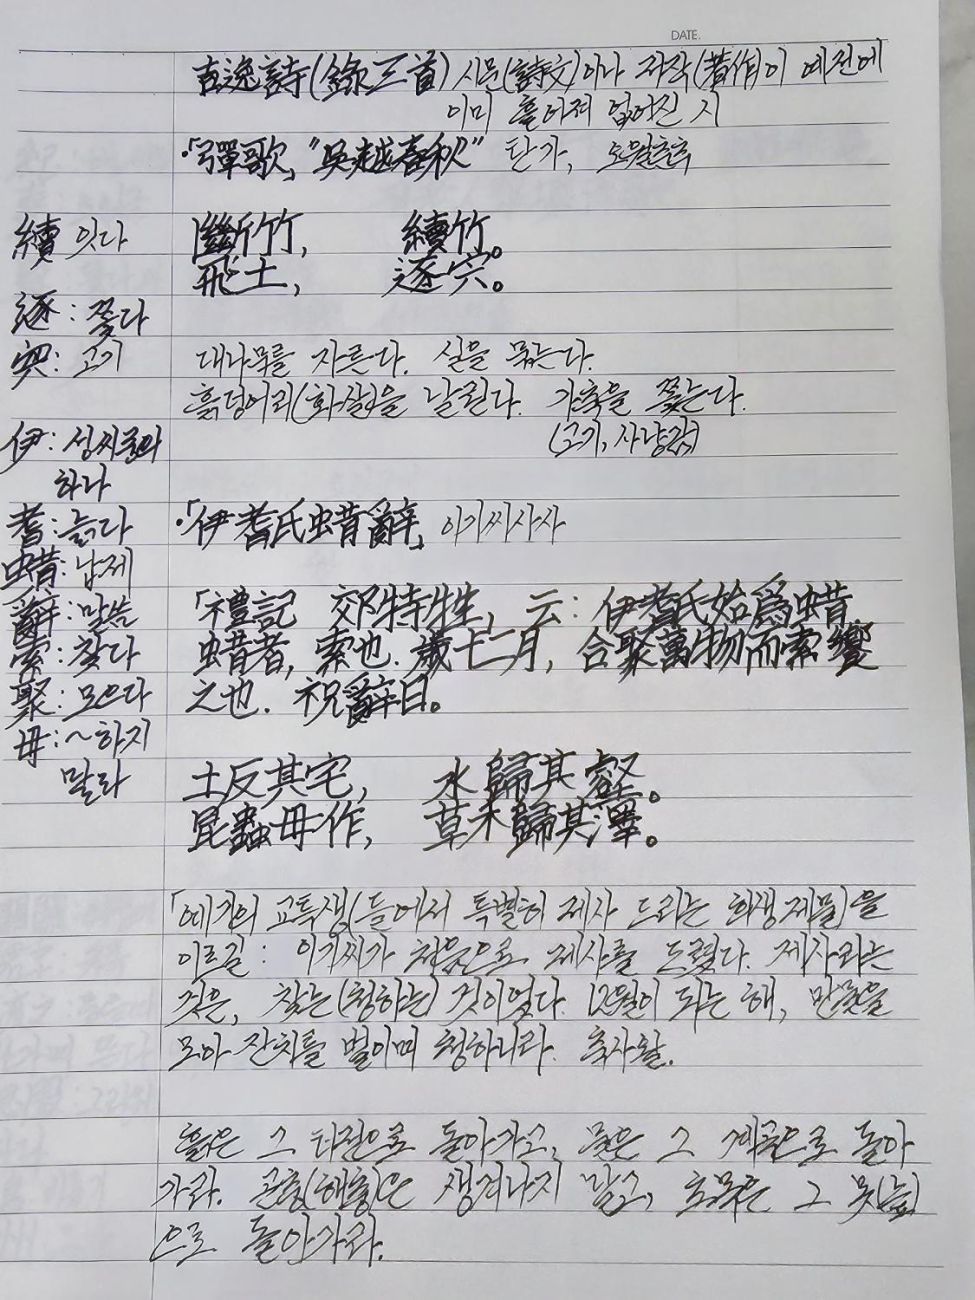 DATE.
古逸詩(錄三首) 시문(詩文)이나 저작(著作)이 예전에
이미 흩어져 없어진 시
·「彈歌」, "吳越春秋" 탄가, 오월춘추
續 잇다
斷竹, 續竹。
飛土, 逐宍。
逐: 쫓다
宍: 고기
대나무를 자른다. 실을 묶는다.
흙덩어리(화살)을 날린다. 가축을 쫓는다.
(고기, 사냥감)
伊: 성씨중의
하나
耆: 늙다
·「伊耆氏蜡辭」 이기씨사사
蜡: 납제
辭: 말씀
「禮記 郊特牲, 云: 伊耆氏始爲蜡
索: 찾다
蜡者, 索也. 歲十二月, 合聚萬物而索饗
聚: 모으다
之也. 祝辭曰。
毋: ~하지
말라
土反其宅, 水歸其壑。
昆蟲毋作, 草木歸其澤。
「예기의 교특생(들에서 특별히 제사 드리는 희생 제물)을
이르길: 이기씨가 처음으로 제사를 드렸다. 제사라는
것은, 찾는(청하는) 것이었다. 12월이 되는 해, 만물을
모아 잔치를 벌이며 청하니라. 축사왈.
흙은 그 터전으로 돌아가고, 물은 그 계곡으로 돌아
가라. 곤충(해충)은 생겨나지 말고, 초목은 그 못(늪)
으로 돌아가라.